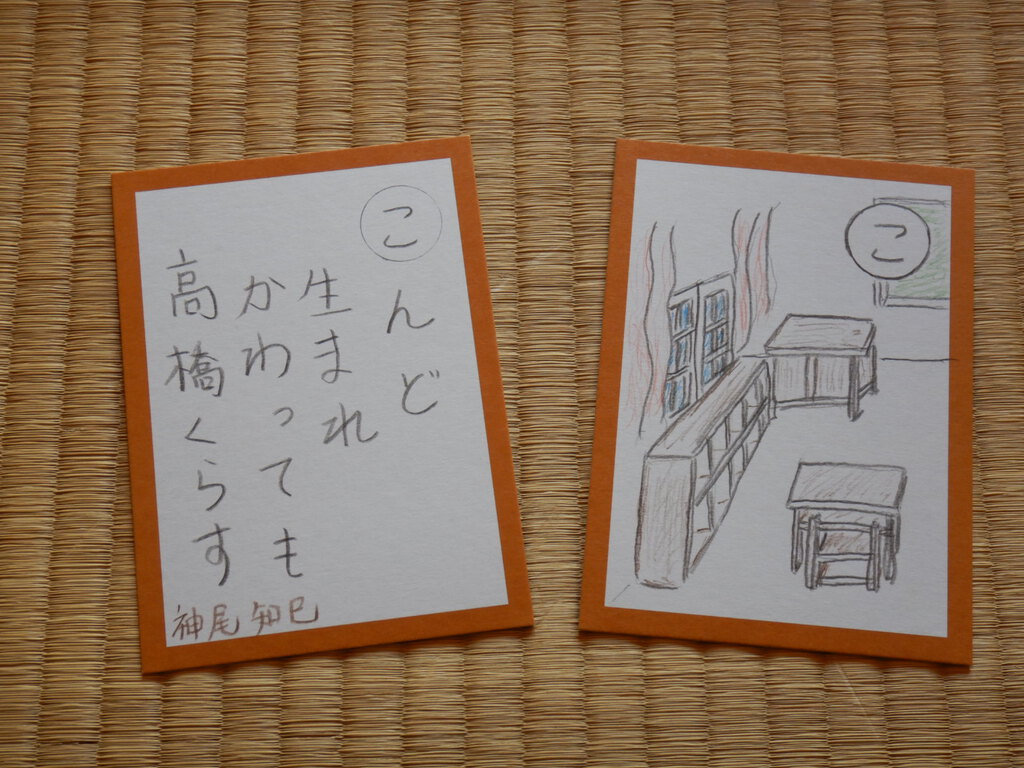 こ
んど
生まれ
かわっても
高橋くらす
神尾知巳
こ